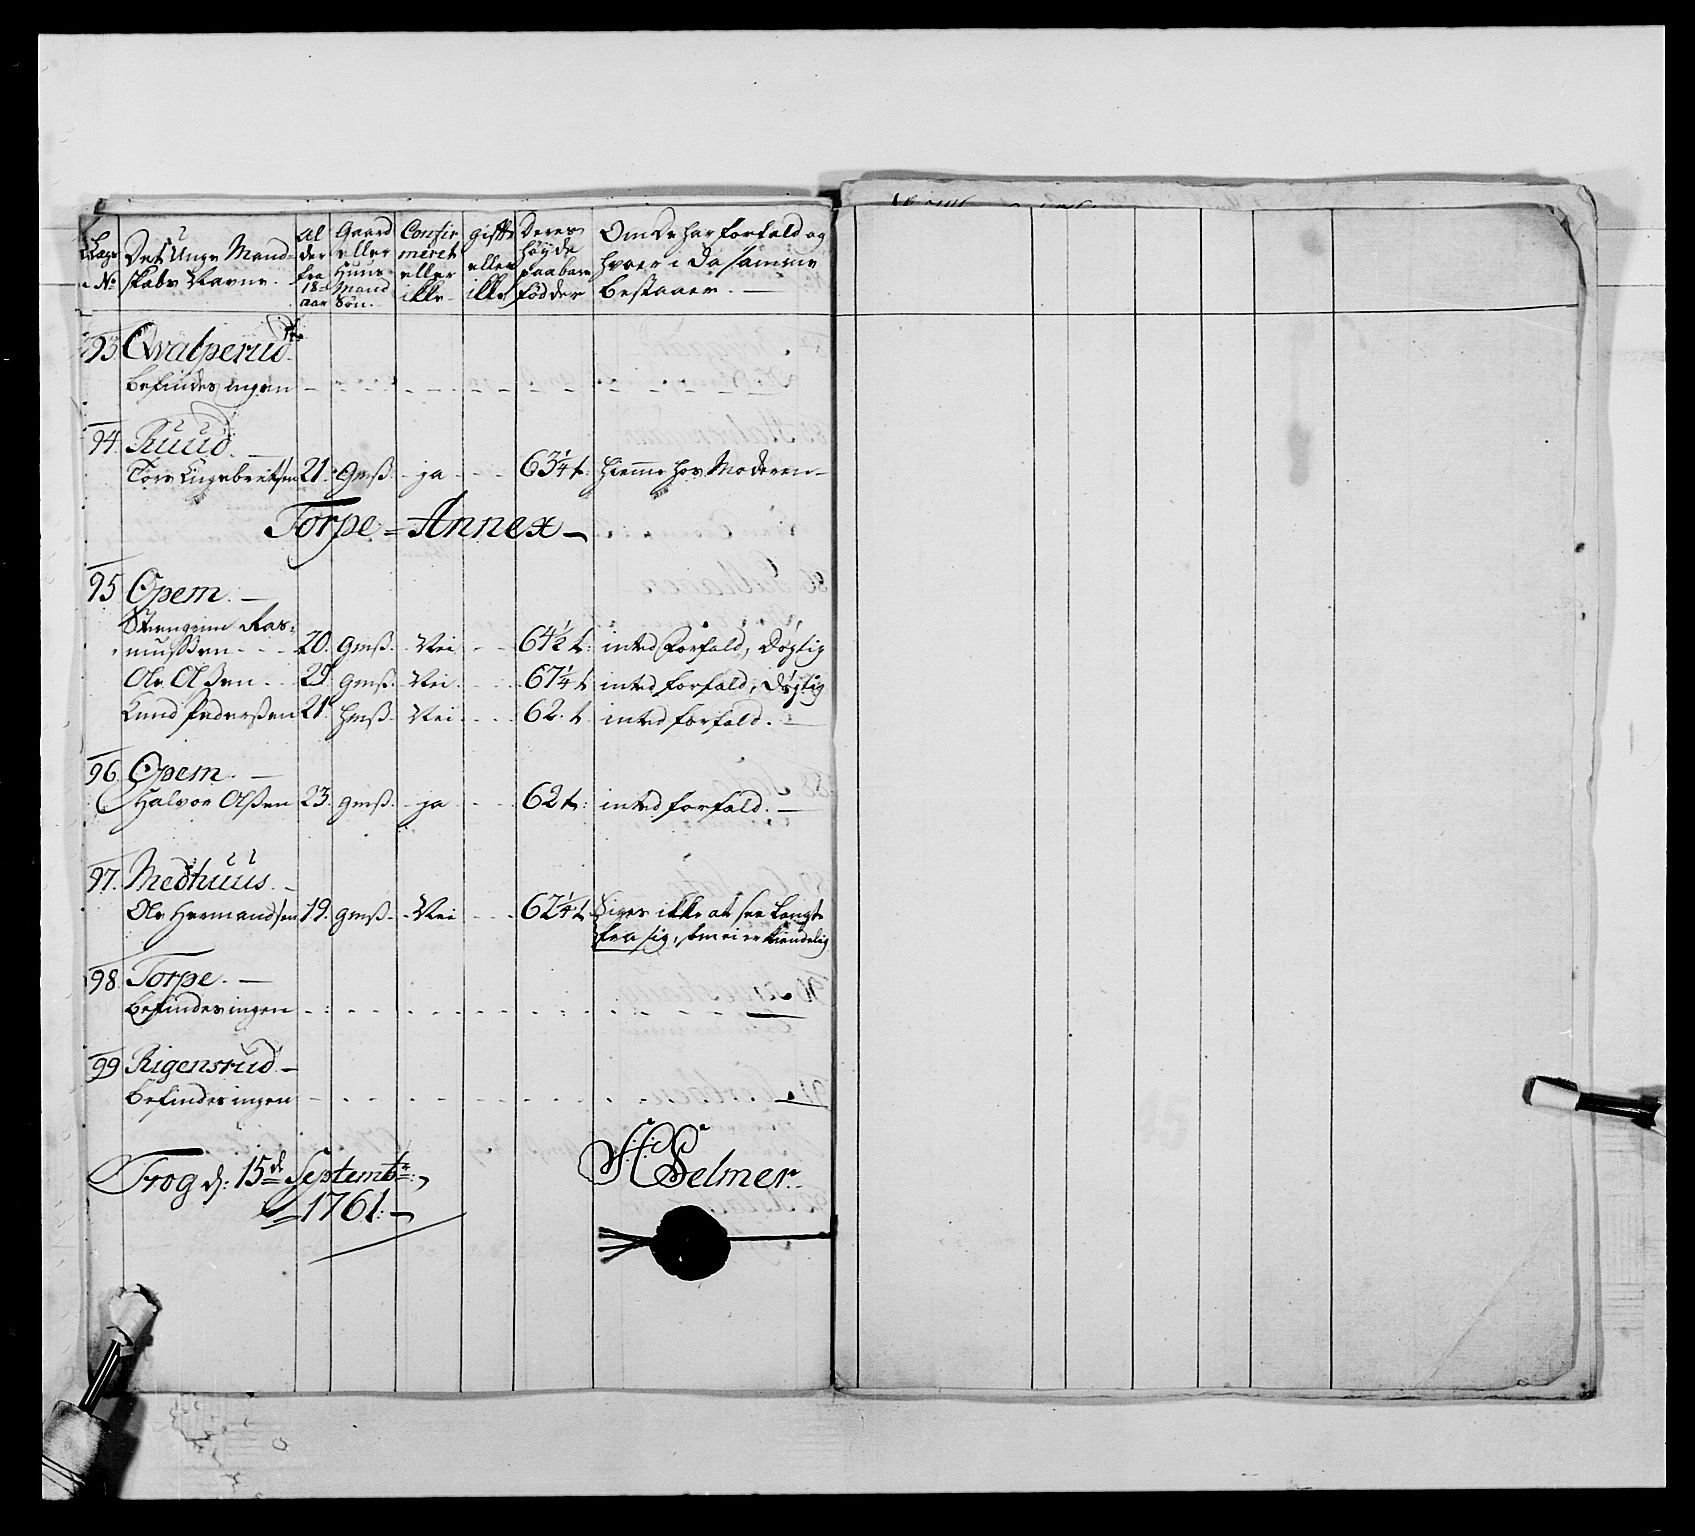 Lægs No | Det Unge Mandskabs Navne. | Alder fra 18 aar | Gaard eller Huus Mand Søn. | Confirmeret eller ikke | gifft eller ikke | Deres høyde paa bare Fødder | Om De har forfald og hvori Da samme bestaaer. —
93 Qvalperud
befindes ingen
94. Ruud. —
Tore Engebretsen 21. gmß. ja 63¼ t. hieme hos Moderen —
Torpe = Annex —
95 Opem. —
Rasmußen 20. gmß. Nei 64½ t: inted Forfald, Dygtig
Ole Olßen 29. gmß. Nei 67¼ t inted forfald, Dygtig
Knud Pederßen 21. hmß. Nei 62. t. inted forfald. —
96. Opem. —
Halvor Olßen 23. gmß. ja 62 t: inted forfald. —
97. Medhuus. —
Ole Hermandsen 19. gmß. Nei 62¼ t. Siges ikke at see langt
fra sig, som ei er kiendelig
98. Torpe. —
befindes ingen
99 Rigensrud —
befindes ingen
Trog d: 15de Septembr:
1761. —
HSelmer.